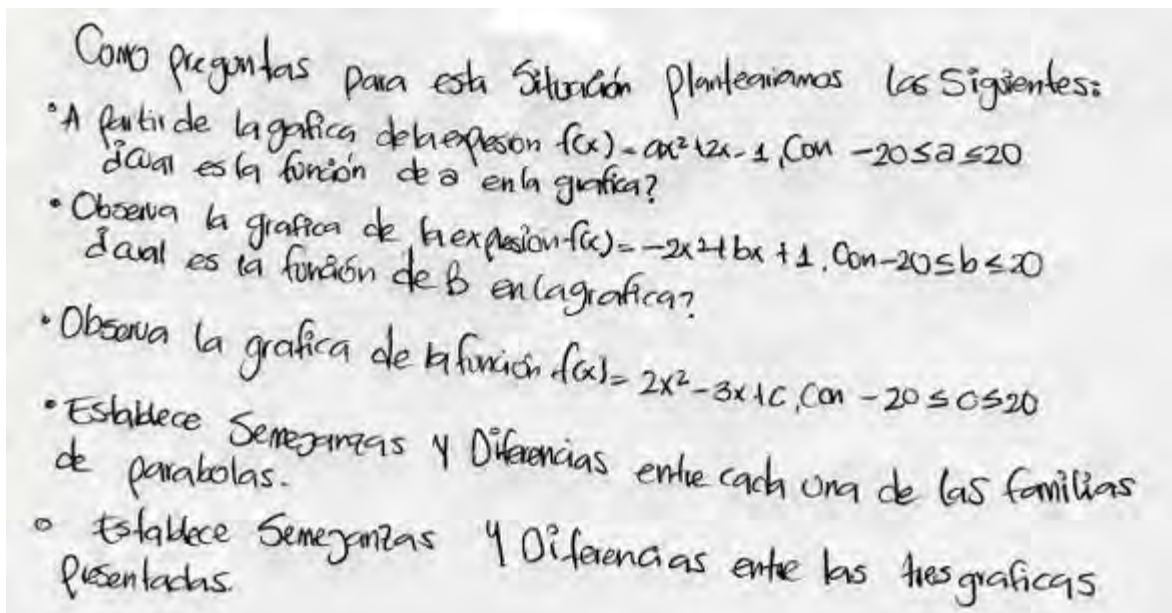 Como preguntas para esta Situación Plantearíamos las Siguientes:
• A partir de la gafica de la expresion f(x) = ax² + 2x - 1, Con -20 ≤ a ≤ 20
¿cual es la función de a en la grafica?
• Observa la grafica de la expresion f(x) = -2x² + bx + 1. Con -20 ≤ b ≤ 20
¿cual es la función de B en la grafica?
• Observa la grafica de la función f(x) = 2x² - 3x + C, Con -20 ≤ c ≤ 20
• Establece Semejanzas y Diferencias entre cada una de las familias
de parabolas.
• Establece Semejanzas y Diferencias entre las tres graficas
presentadas.